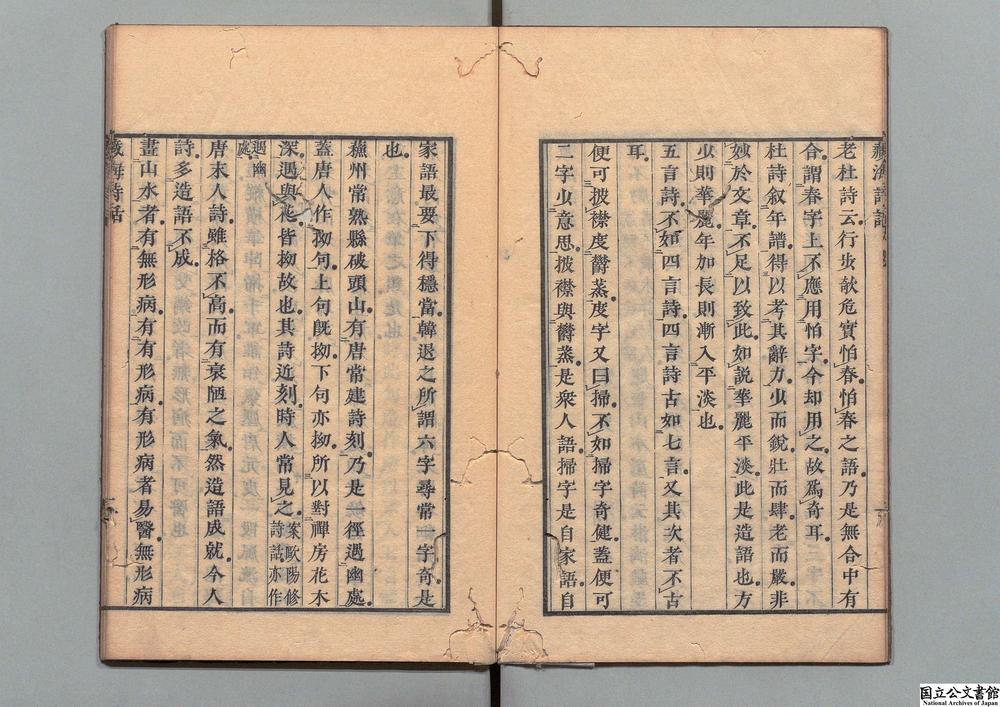 老杜詩云行步欹危實怕春怕春之語乃是無合中有
合謂春字上不應用怕字今却用之故爲奇耳
杜詩叙年譜得以考其辭力少而銳壯而肆老而嚴非
妙於文章不足以致此如說華麗平淡此是造語也方
少則華麗年加長則漸入平淡也
五言詩不如四言詩四言詩古如七言又其次者不古
耳
便可披襟度欝蒸度字又曰掃不如掃字奇健蓋便可
二字少意思披襟與欝蒸是衆人語掃字是自家語自
家語最要下得穩當韓退之所謂六字尋常一字奇是
也
蘓州常熟縣破頭山有唐常建詩刻乃是一徑遇幽處
蓋唐人作拗句上句旣拗下句亦拗所以對禪房花木
深遇與花皆拗故也其詩近刻時人常見之
案歐陽修
詩話亦作
遇幽
處
唐末人詩雖格不高而有衰陋之氣然造語成就今人
詩多造語不成
畫山水者有無形病有有形病有形病者易醫無形病
藏海詩話
国立公文書館
National Archives of Japan